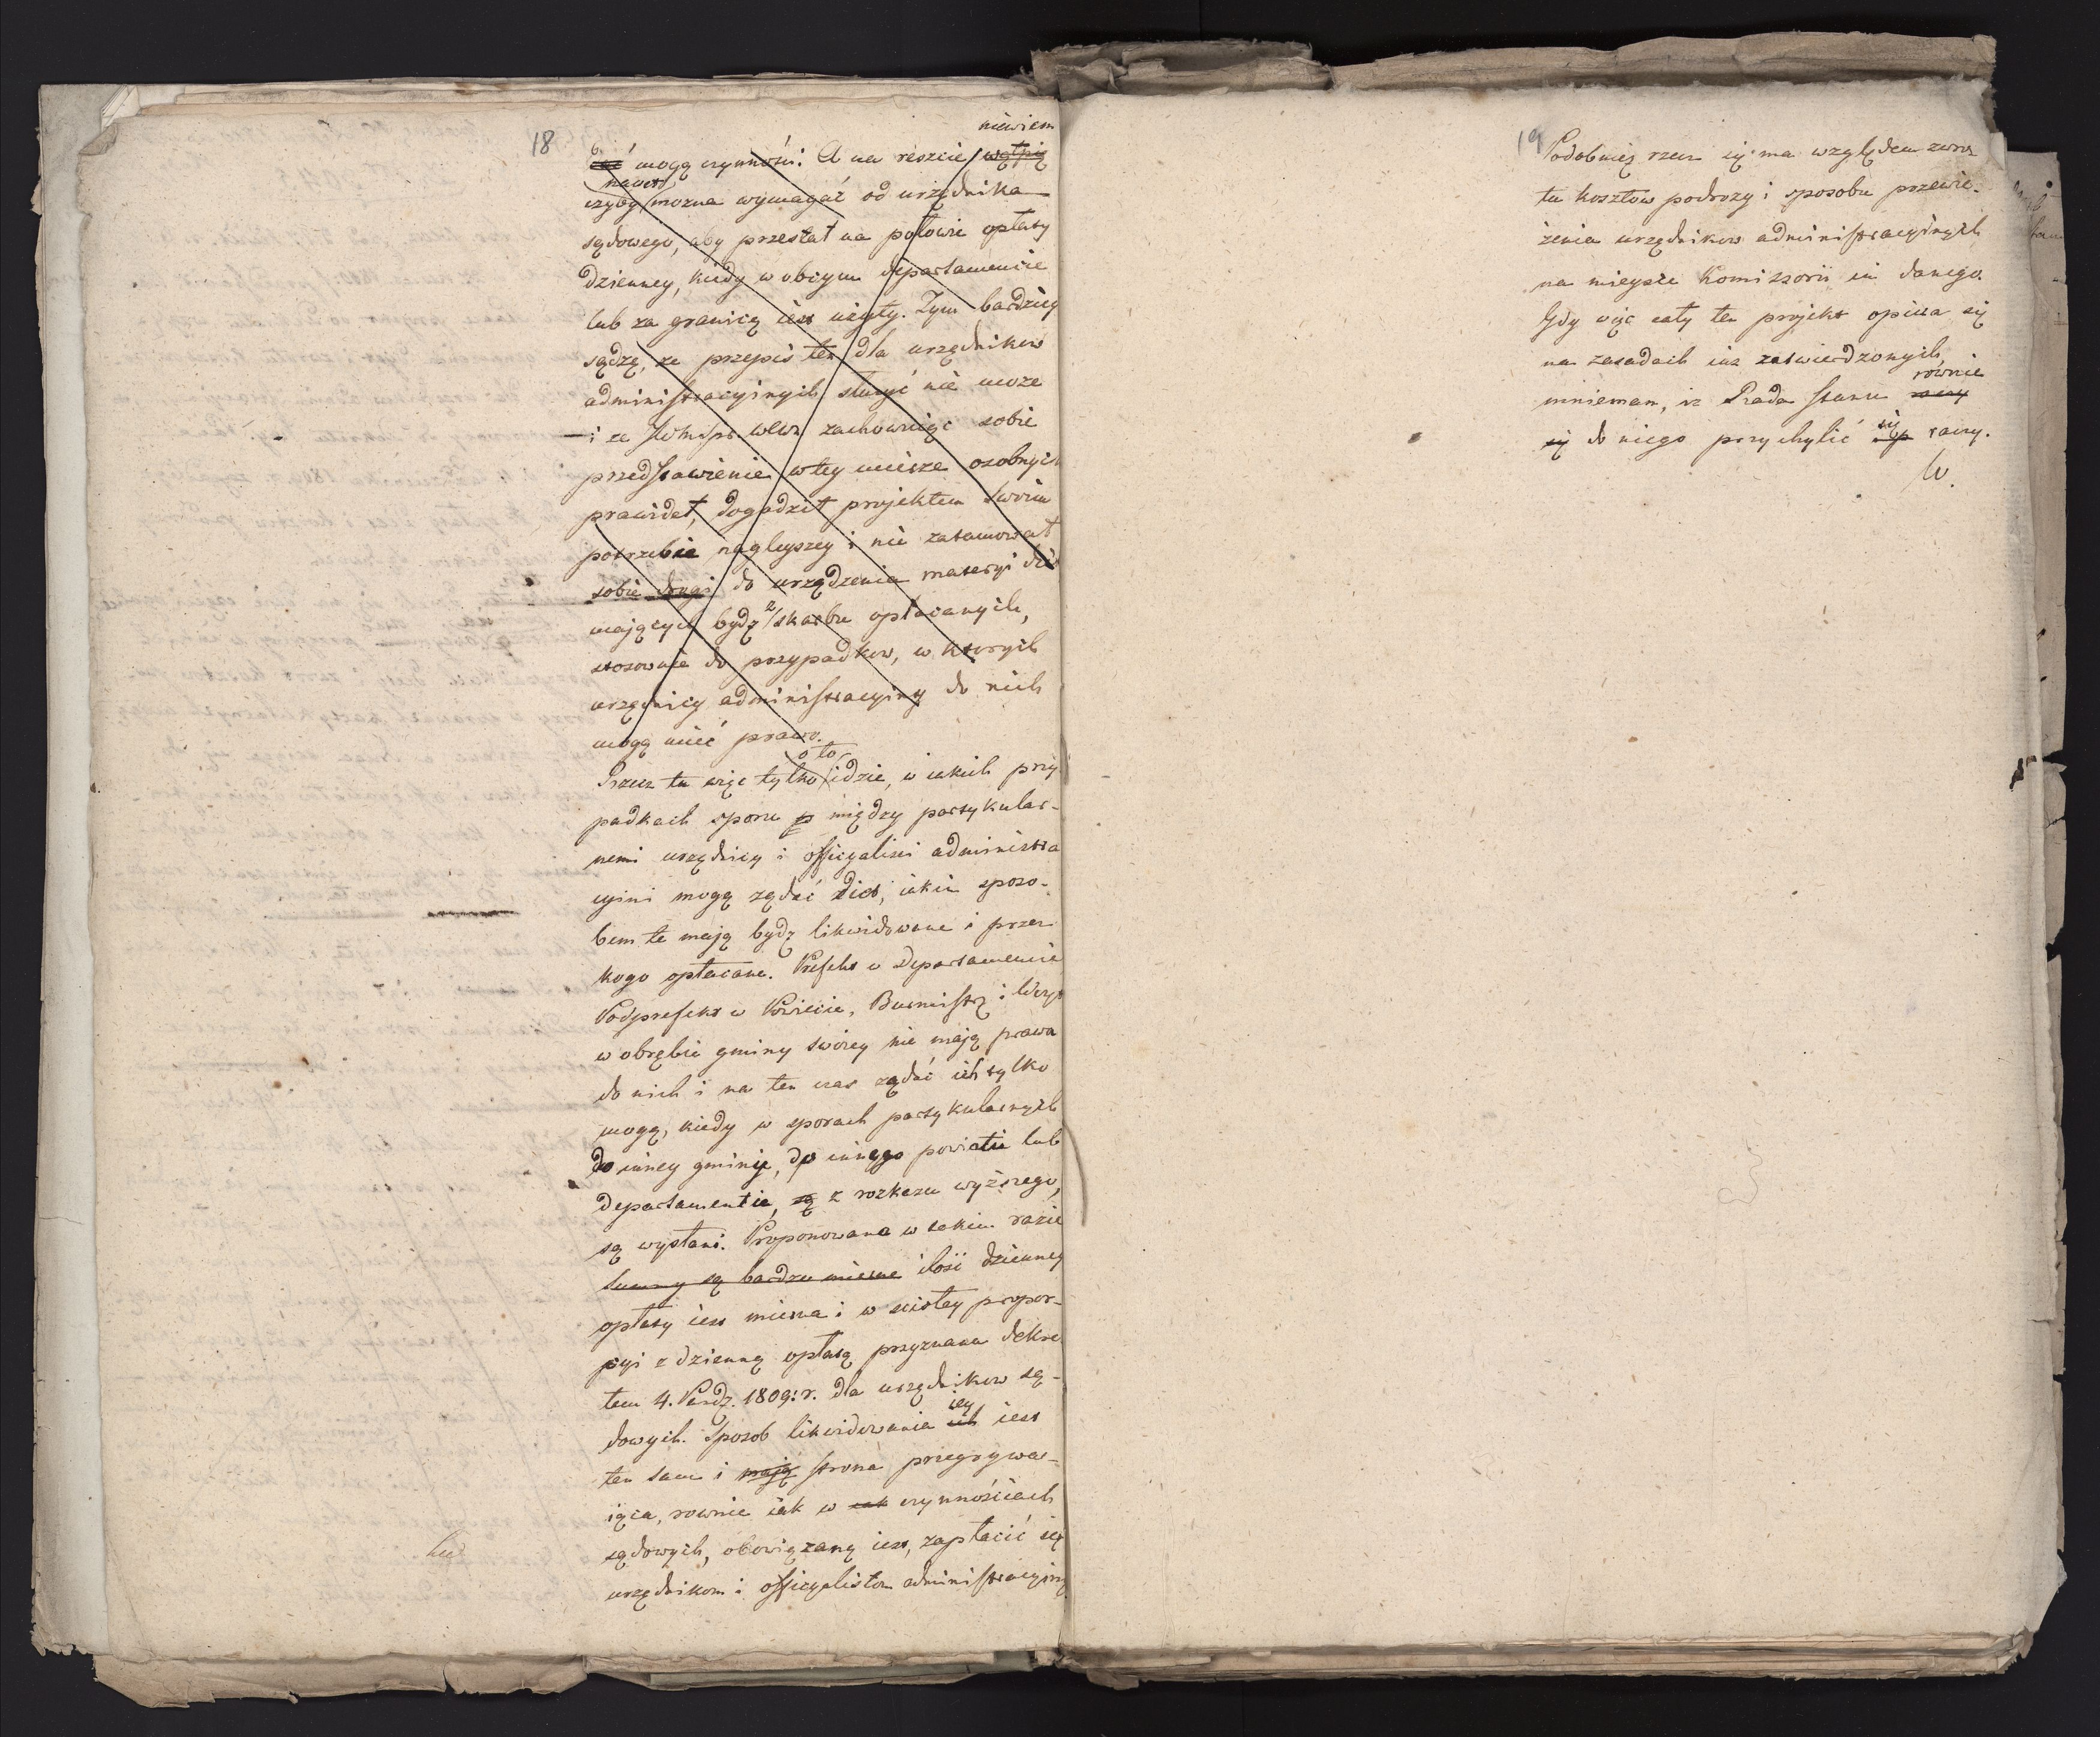 18
niewiem
mogą czynności: A na reszcie wątpię
nawet
czyby można wymagać od urzędnika
sądowego, aby przestał na połowie opłaty
dzienney, kiedy w obcym departamencie
lub za granicą iest użyty. Tym bardziey
sądzę, że przepis ten dla urzędnikow
administracyinych służyć nie może
i że zachowuiąc sobie
przedstawienie w tey mierze osobnych
prawideł, dogodził projektem swoim
potrzebie nagleyszey i nie zatamował
sobie drogi do urządzenia materyi diet
maiących bydź z skarbu opłacanych,
stosownie do przypadkow, w ktorych
urzędnicy administracyiny do nich
mogą mieć prawo.
o to
Rzecz tu więc tylko idzie, w iakich przy
padkach sporu p między partykular-
nemi urzędnicy i officyaliści administra
cyini mogą żądać diet, iakim sposo-
bem te maią bydź likwidowane i przez
kogo opłacane. Prefekt w Departamencie
Podprefekt w Powiecie, Burmistrz i Woyt
w obrębie gminy swoiey nie maią prawa
do nich i na ten czas żądać ich tylko
mogą, kiedy w sporach partykularnych
do inney gminy, do innego powiatu lub
departamentu, są z rozkazu wyższego,
są wysłani. Proponowana w takim razie
summy są bardzo mierne ilość dzienney
opłaty iest mierna i w ścisłey propor-
cyi z dzienną opłatą przyznaną dekre
tem 4. Paźdz. 1809: r. dla urzędnikow są-
iey
dowych. Sposob likwidowania ich iest
ten sam i maią strona przegrywa-
iąca, rownie iak w czynnościach
sądowych, obowiązaną iest, zapłacić ią
urzędnikom i officyalistom administracyiny
19
Podobnież rzecz się ma względem zwro
tu kosztow podroży i sposobu przewie-
zienia urzędnikow administracyinych
na mieysce Komissorii im danego.
Gdy więc cały ten projekt opiera się
na zasadach iuż zatwierdzonych,
równie
mniemam, iż Rada Stanu raczy
się
się do niego przychylić raczy.
W.